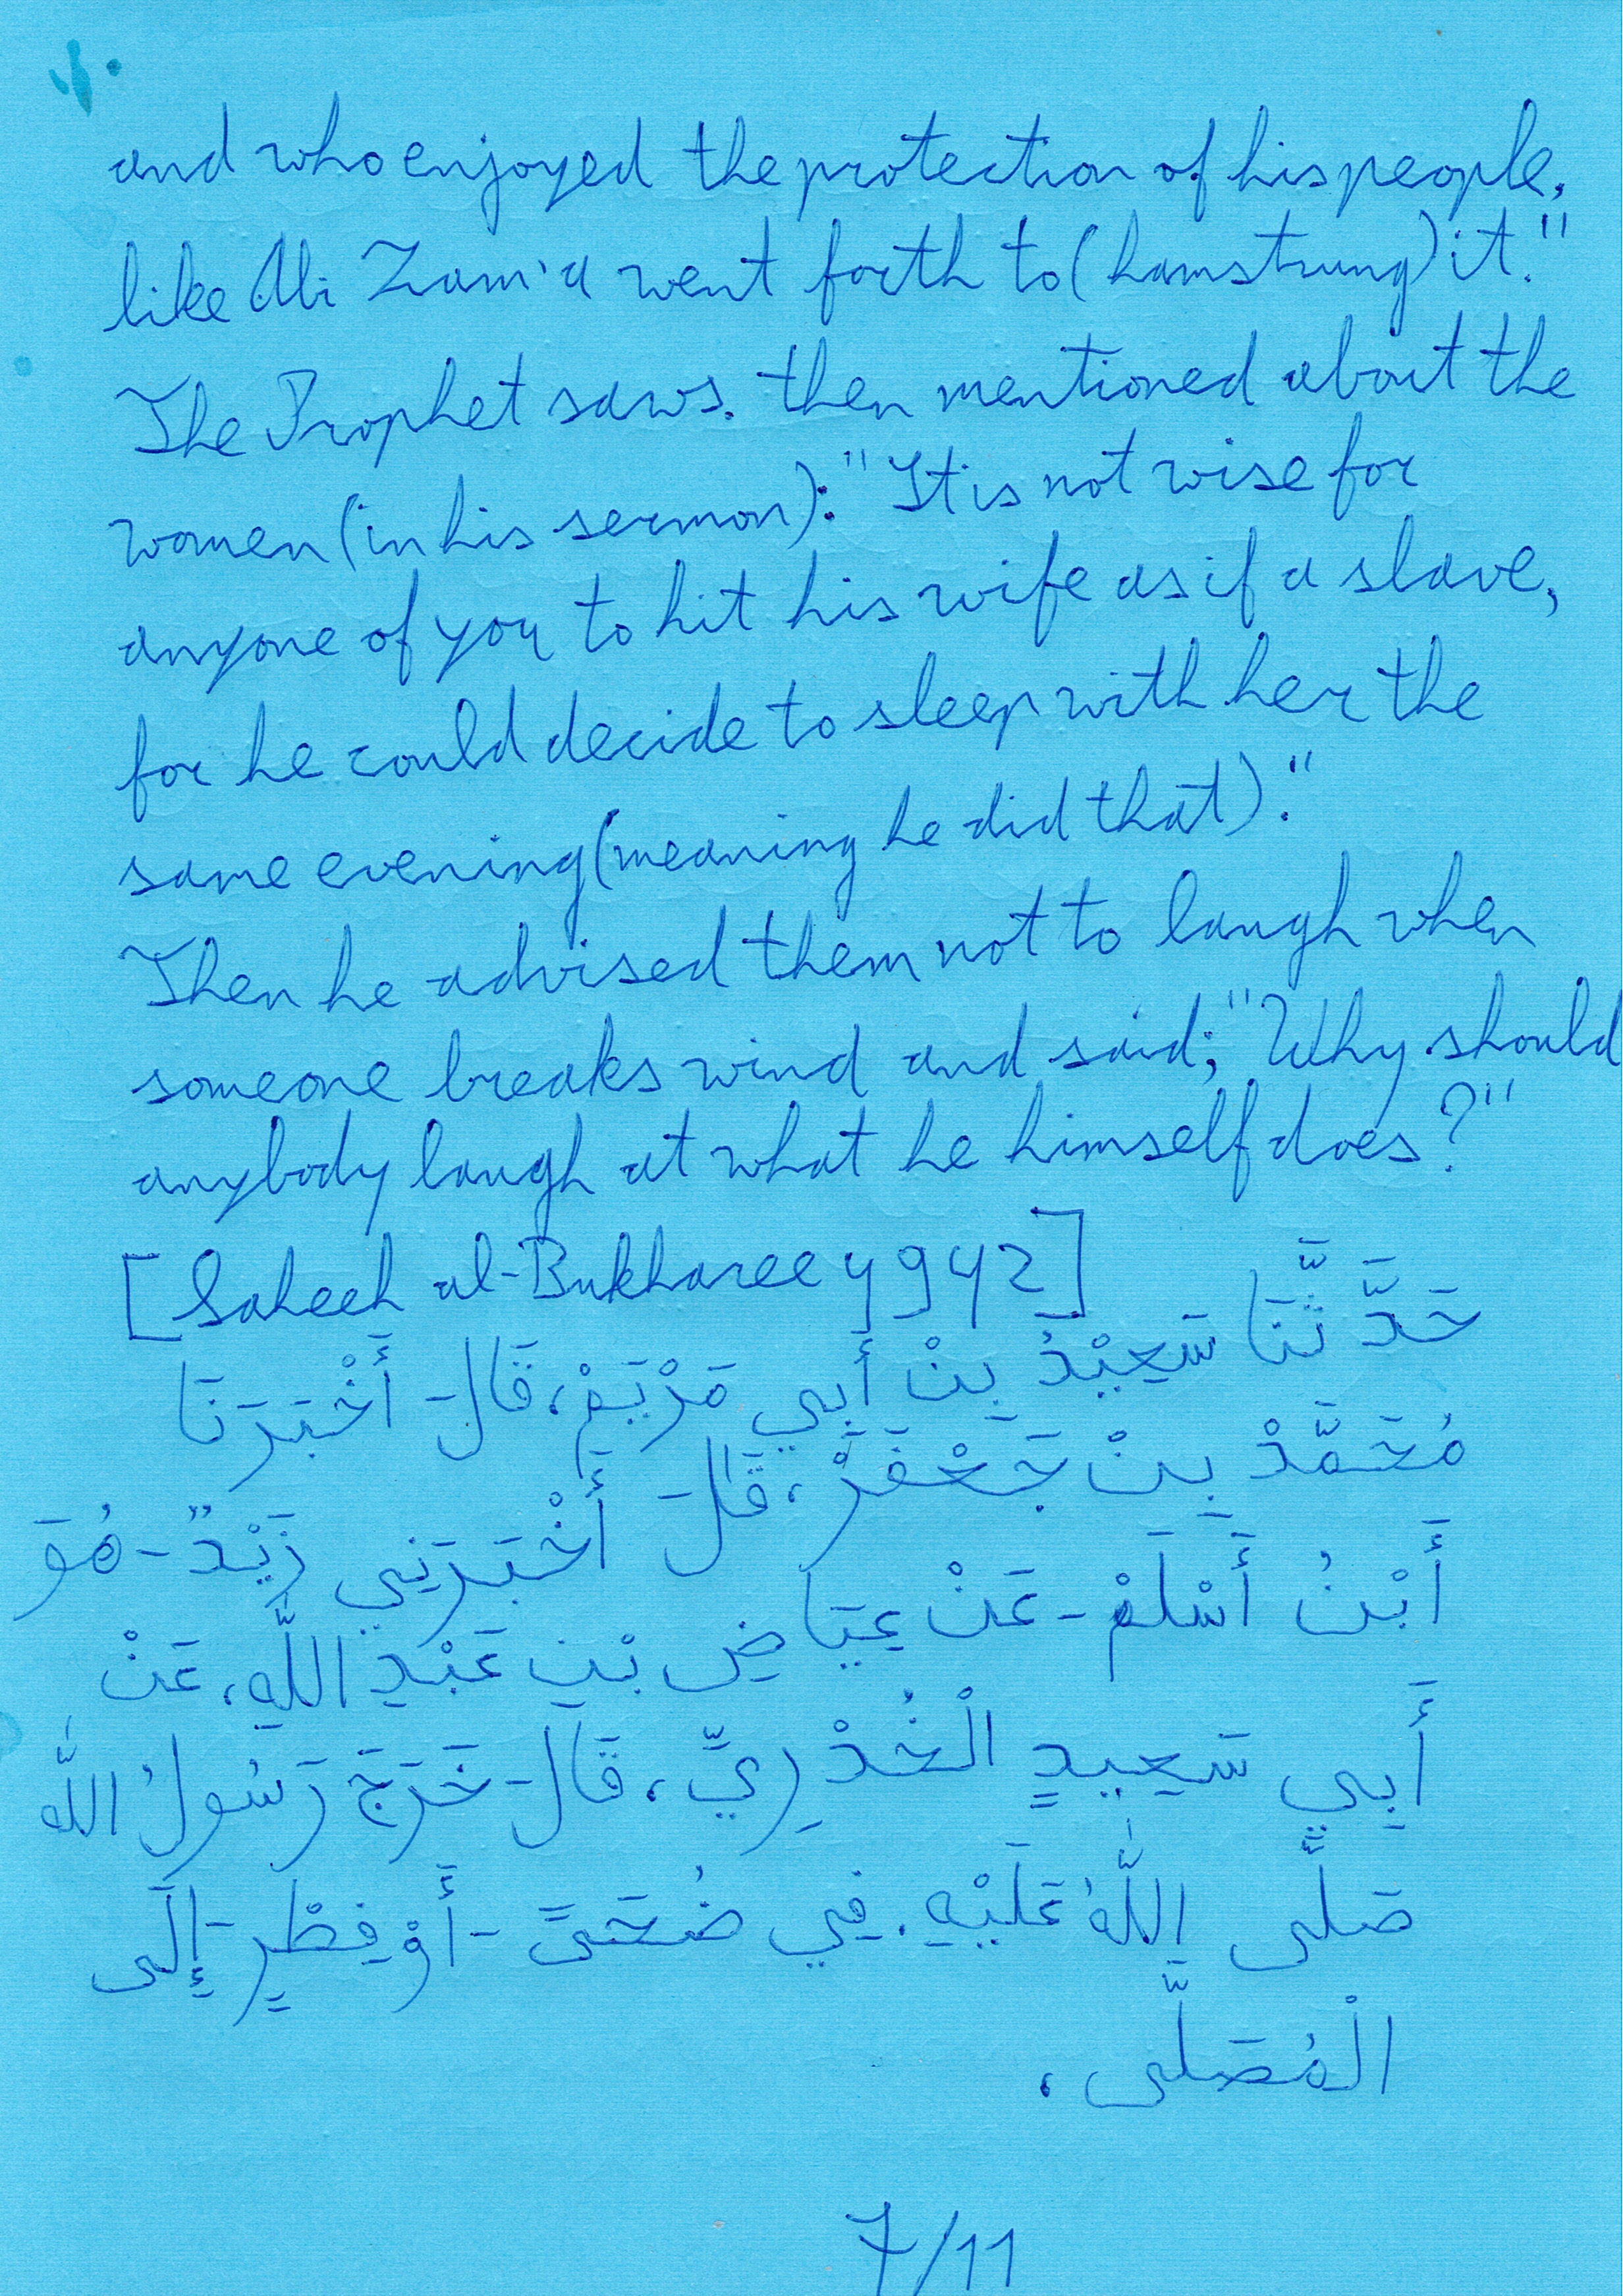 and who enjoyed the protection of his people,
like Abi Zam'a went forth to (hamstrung) it."
The Prophet saws. then mentioned about the
women (in his sermon): "It is not wise for
anyone of you to hit his wife as if a slave,
for he could decide to sleep with her the
same evening (meaning he did that)."
Then he advised them not to laugh when
someone breaks wind and said; "Why should
anybody laugh at what he himself does?"
[Saheeh al-Bukharee 4942]
حَدَّثَنَا سَعِيْدُ بِنْ أَبِي مَرْيَمْ، قَالَ أَخْبَرَنَا
مُحَمَّدْ بِنْ جَعْفَرْ، قَالَ أَخْبَرَنِي زَيْدٌ - هُوَ
أَبْنُ أَسْلَمْ - عَنْ عِيَاضِ بْنِ عَبْدِ اللَّهِ، عَنْ
أَبِي سَعِيدٍ الْخُدْرِيِّ، قَالَ خَرَجَ رَسُولُ اللَّه
صَلَّى اللَّهُ عَلَيْهِ. فِي ضُحَىً - أَوْ فِطْرٍ - إِلَى
الْمُصَلَّى،
7/11